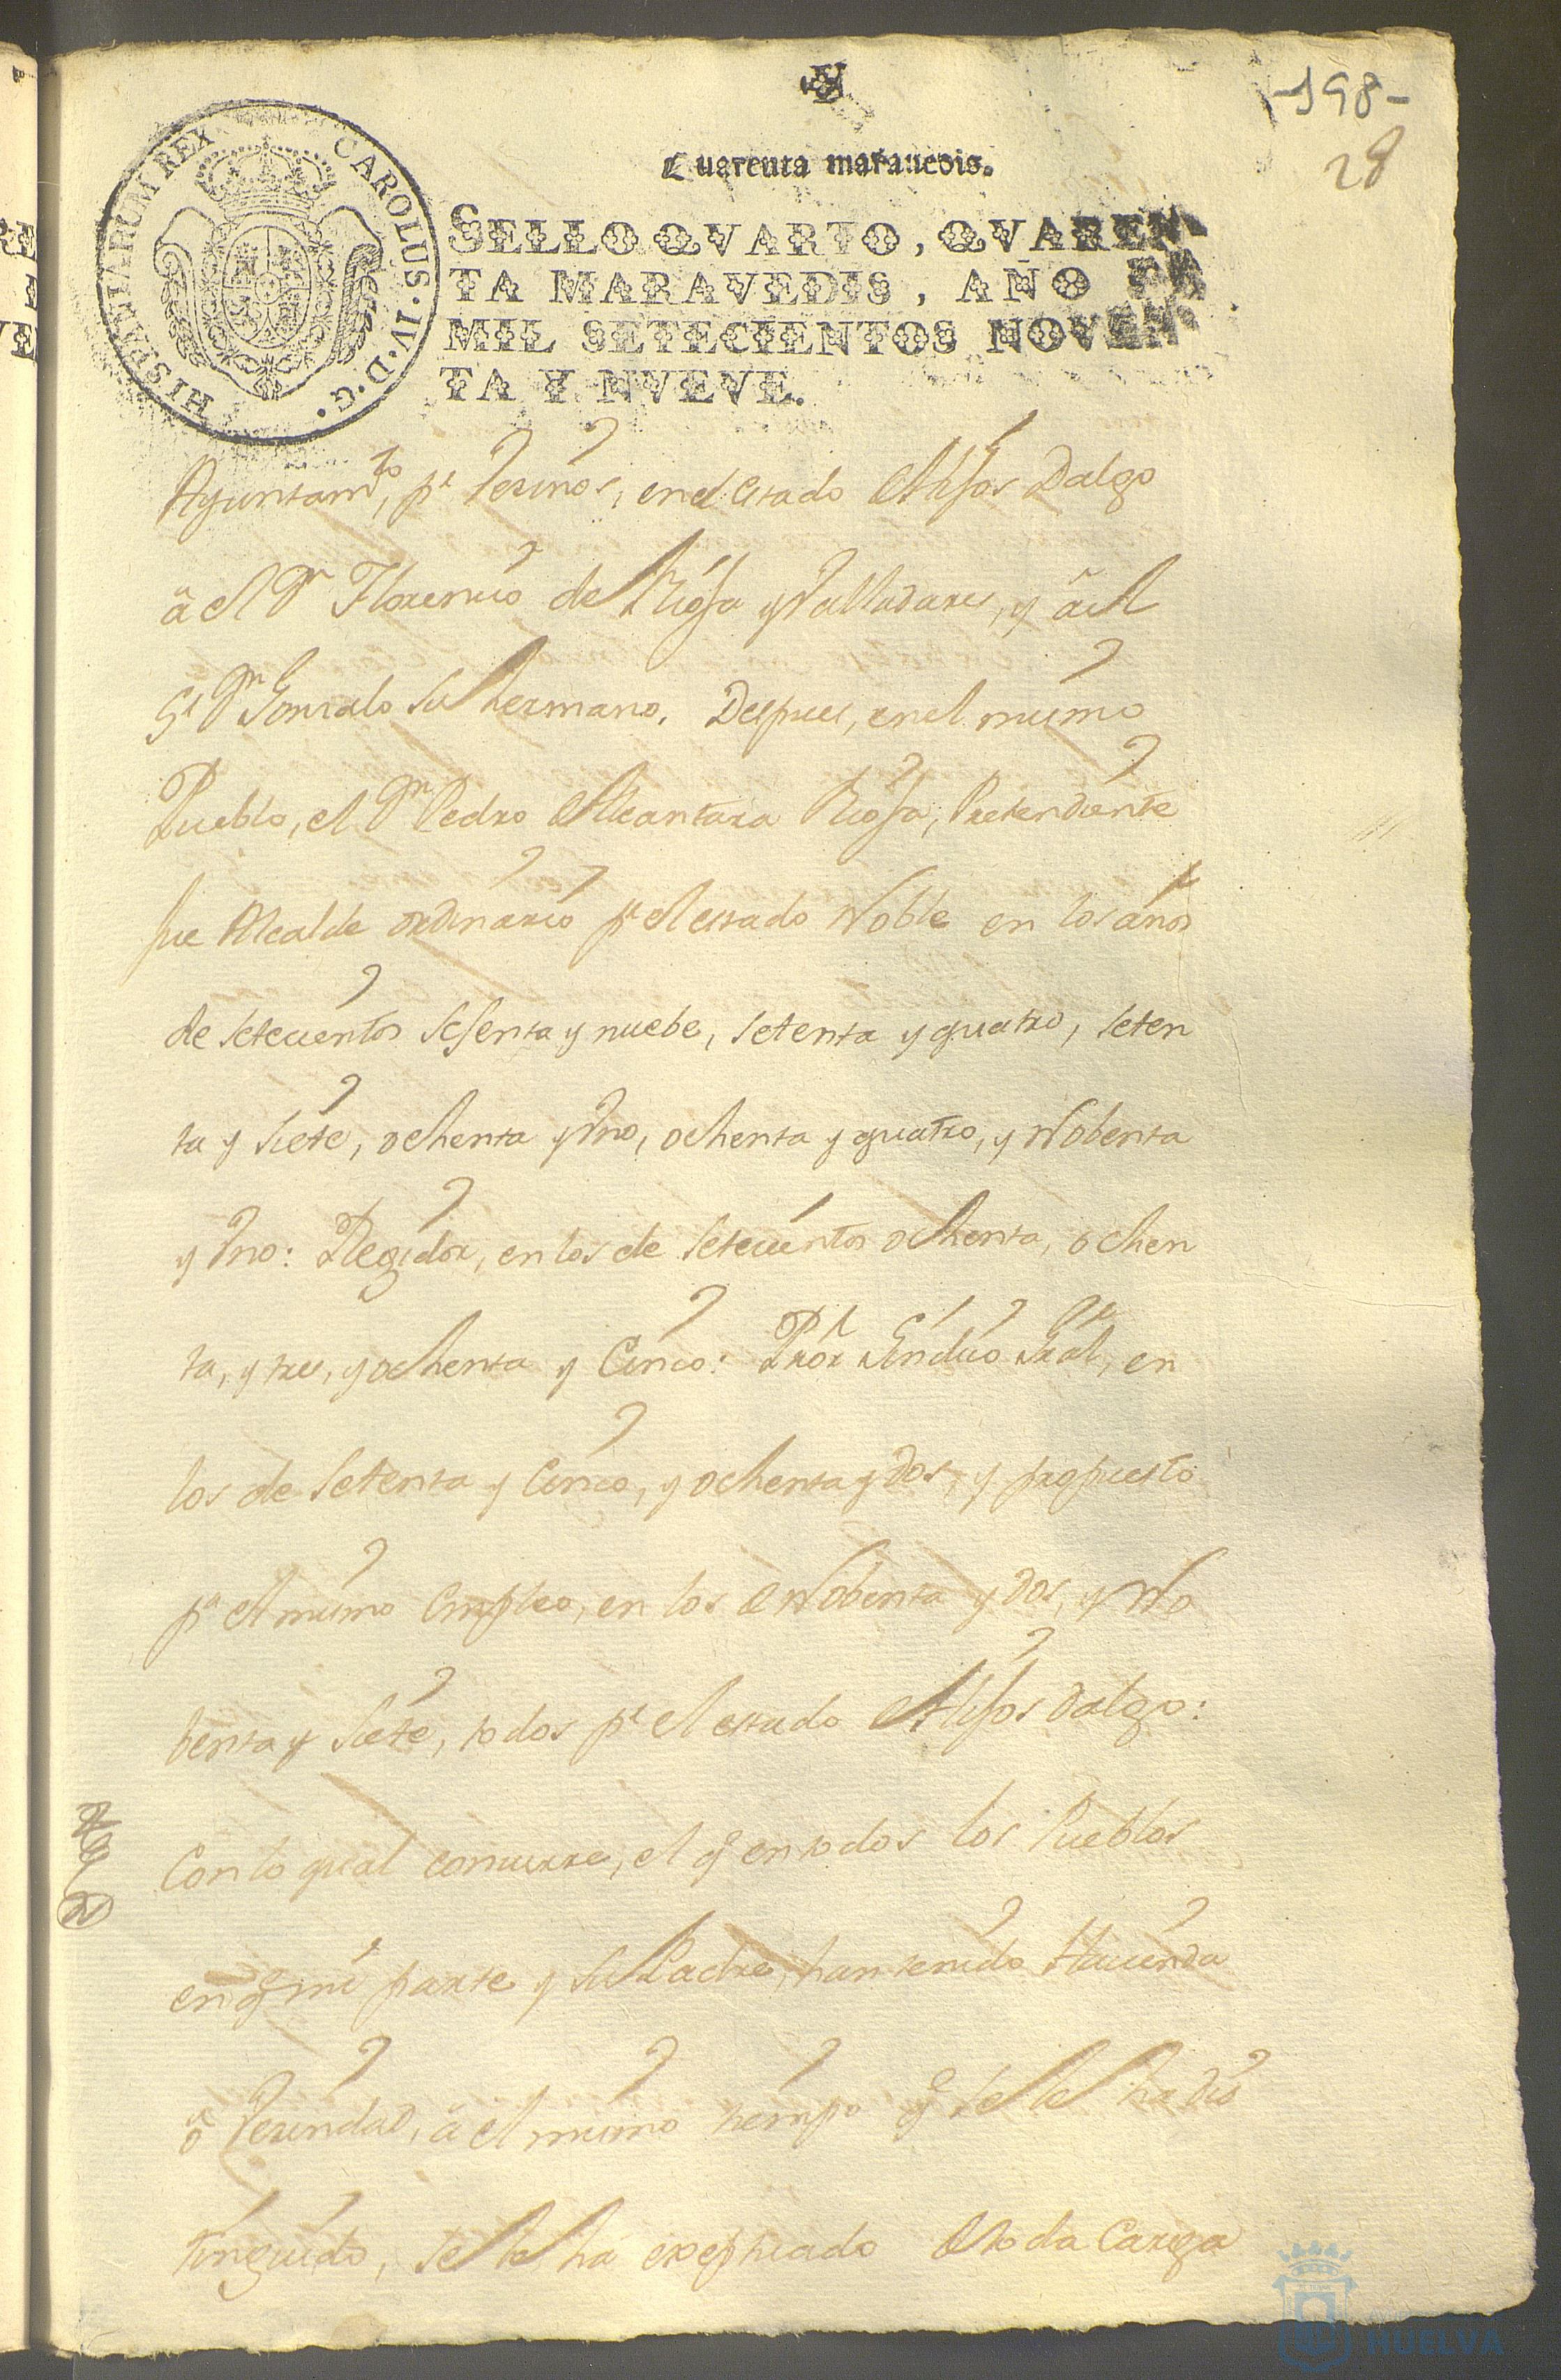 -198-
28
Quarenta marauedis.
SELLO QVARTO, QVAREN
TA MARAVEDIS, AÑO DE
MIL SETECIENTOS NOVEN
TA Y NVEVE.
HISPANIARUM REX CAROLUS·IV·D·G·
Ayuntamto, pr Vecinos, en el estado de Hijos Dalgo
â el Dn Florencio de Rioja y Valladares, y âel
Sr Dn Gonzalo su hermano. Despues, en el mismo
Pueblo, el Dn Pedro Alcantara Rioja, Pretendiente
fue Alcalde ordinario pr el estado Noble en los años
de setecientos sesenta y nuebe, setenta y quatro, seten
ta y siete, ochenta y Vno, ochenta y quatro, y Nobenta
y Vno: Regidor, en los de setecientos ochenta, ochen
ta, y tres, y ochenta y Cinco: Pror Sindico Gral, en
los de setenta y Cinco, y ochenta y dos, y propuesto
pa el mismo empleo, en los de Nobenta y dos, y No
benta y siete, todos pr el estado de Hijos dalgo:
Con lo qual concurre, el q en todos los Pueblos
en q mi parte y su Padre, han tenido Hacienda
ô Vecindad, â el mismo tiempo q se le ha dis
tinguido, se le ha exeptuado de toda Carga
HUELVA